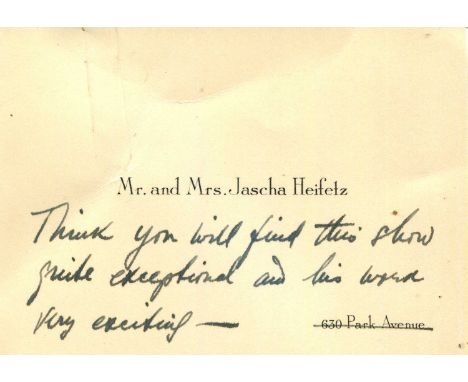 Mr. and Mrs. Jascha Heifetz
Think you will find this show
quite exceptional and his
very exciting —
630 Park Avenue